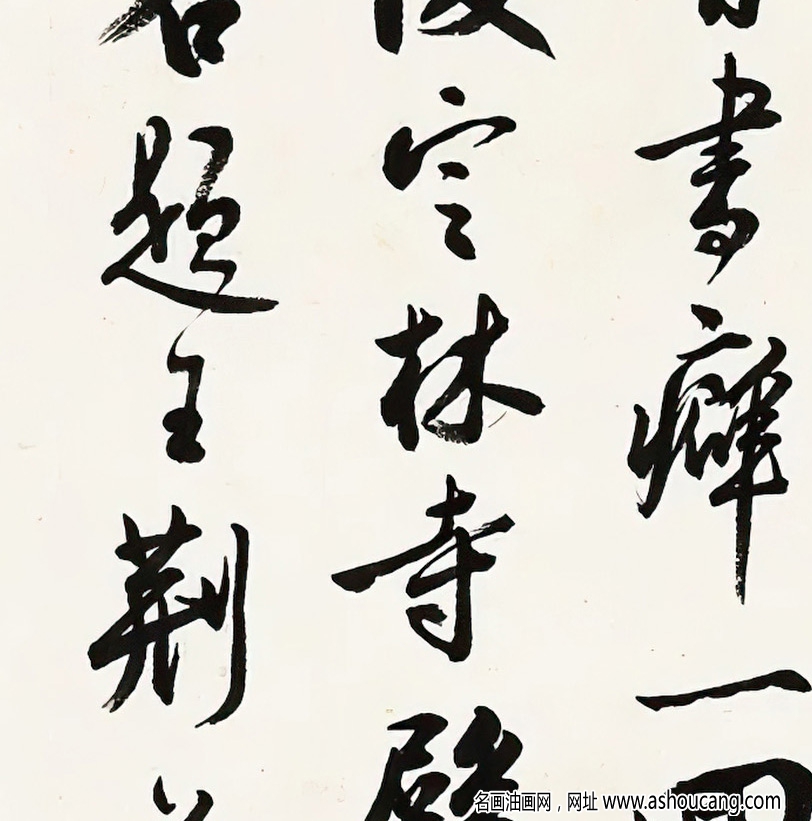 書癖一回
定林寺
題王荊
名画油画网，网址 www.ashoucang.com